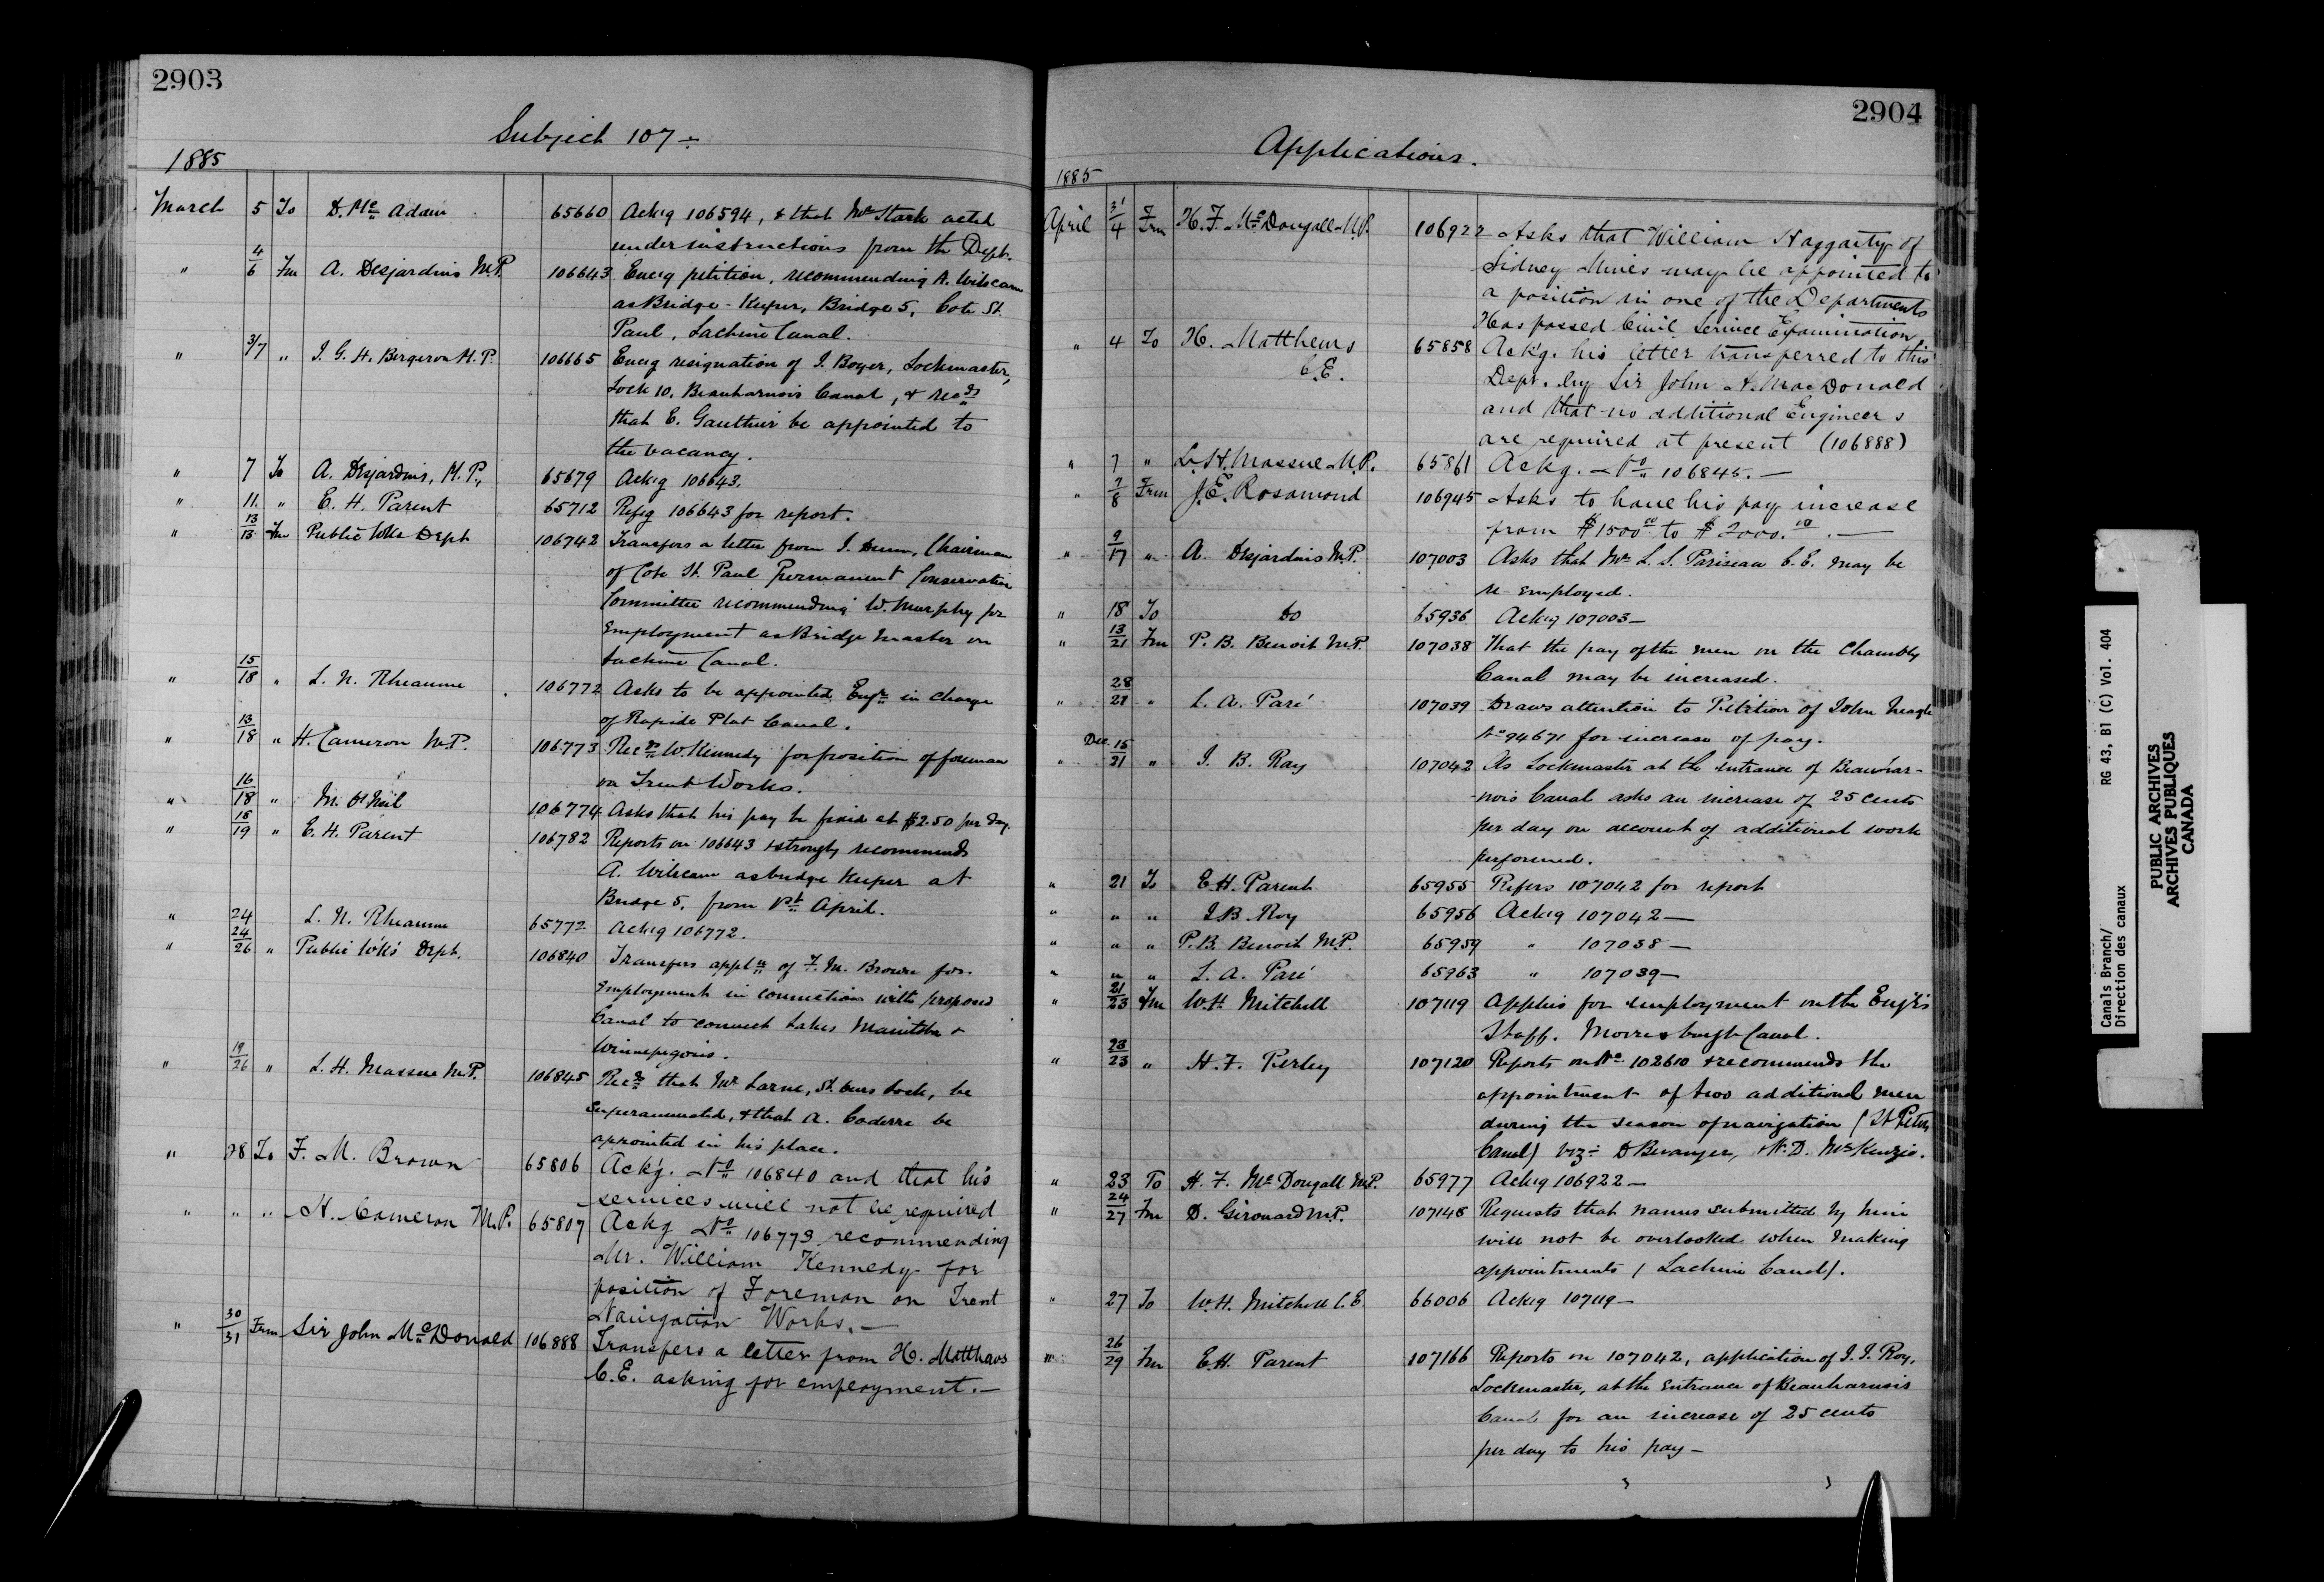 2903
Subject 107 ÷
1885
March 5 To D. Mc Adam 65660 Ackg 106594, & that Mr Stark acted
under instructions from the Dept.
" 4/6 Fm A. Desjardins M.P. 106643 Encg petition, recommending A.
as Bridge-Keeper, Bridge 5, Cote St.
Paul, Lachine Canal.
" 3/7 " J. G. H. Bergeron M.P. 106665 Encg resignation of J. Boyer, Lockmaster,
Lock 10, Beauharnois Canal, & recds
that E. Gauthier be appointed to
the vacancy.
" 7 To A. Desjardins, M.P., 65679 Ackg 106643.
" 11. " E. H. Parent 65712 Refeg 106643 for report.
" 13/13 Fm Public Wks Dept 106742 Transfers a letter from J. Dunn, Chairman
of Cote St. Paul Permanent Conservative
Committee recommending W. Murphy for
Employment as Bridge Master on
Lachine Canal.
" 15/18 " L. N. Rheaume 106772 Asks to be appointed Engr in charge
of Rapide Plat Canal.
" 13/18 " H. Cameron M.P. 106773 Recds W. Kennedy for position of foreman
on Trent Works.
" 16/18 " M. O'Neil 106774 Asks that his pay be fixed at $2.50 per day.
" 18/19 " E. H. Parent 106782 Reports on 106643 & strongly recommends
A. as bridge keeper at
Bridge 5, from 1st April.
" 24 L. N. Rheaume 65772 Ackg 106772.
" 24/26 " Public Wks Dept. 106840 Transfers appln of F. M. Brown for
Employment in connection with proposed
Canal to connect Lakes Manitoba &
Winnepegosis.
" 19/26 " L. H. Massue M.P. 106845 Recds that Mr Larue, St. Ours Lock, be
superannuated, & that A. Caderre be
appointed in his place.
" 28 To F. M. Brown 65806 Ackg. No 106840 and that his
services will not be required
" " " H. Cameron M.P. 65807 Ackg No 106773 recommending
Mr. William Kennedy for
position of Foreman on Trent
Navigation Works. —
" 30/31 Frm Sir John McDonald 106888 Transfers a letter from H. Matthews
C.E. asking for employment. —
2904
Applications.
1885
April 31/4 Frm H. F. McDougall M.P. 106922 Asks that William Haggarty of
Sidney Mines may be appointed to
a position in one of the Departments
Has passed Civil Service Examination
" 4 To H. Matthews 65858 Ackg. his letter transferred to this
C.E. Dept. by Sir John A. MacDonald
and that no additional Engineers
are required at present (106888)
" 7 " L. H. Massue M.P. 65861 Ackg. No 106845. —
" 7/8 Frm J. E. Rosamond 106945 Asks to have his pay increase
from $1500.00 to $2000.00. —
" 9/17 " A. Desjardins M.P. 107003 Asks that Mr L. S. Pariseau C.E. may be
re-employed.
" 18 To do 65936 Ackg 107003 —
" 13/21 Fm P. B. Benoit M.P. 107038 That the pay of the men on the Chambly
Canal may be increased.
" 28/21 " L. A. Paré 107039 Draws attention to Petition of John
No 94671 for increase of pay.
" Dec. 15/21 " J. B. Roy 107042 As Lockmaster at the entrance of Beauhar-
-nois Canal asks an increase of 25 cents
per day on account of additional work
performed.
" 21 To E. H. Parent 65955 Refers 107042 for report
" " " J. B. Roy 65956 Ackg 107042 —
" " " P. B. Benoit M.P. 65959 " 107038 —
" " " L. A. Paré 65963 " 107039 —
" 21/23 Fm W. H. Mitchell 107119 Applies for employment on the Engr's
Staff. Morrisburgh Canal.
" 23/23 " H. F. Perley 107120 Reports on No 102610 & recommends the
appointment of two additional men
during the season of navigation (St Peters
Canal) viz: D , & D. McKenzie.
" 23 To H. F. McDougall M.P. 65977 Ackg 106922 —
" 24/27 Fm D. Girouard M.P. 107148 Requests that names submitted by him
will not be overlooked when making
appointments (Lachine Canal).
" 27 To W. H. Mitchell C.E. 66006 Ackg 107119 —
" 26/29 Fm E. H. Parent 107166 Reports on 107042, application of J. J. Roy,
Lockmaster, at the entrance of Beauharnois
Canal for an increase of 25 cents
per day to his pay —
Canals Branch/ RG 43, B1 (C) Vol. 404
Direction des canaux
PUBLIC ARCHIVES
ARCHIVES PUBLIQUES
CANADA